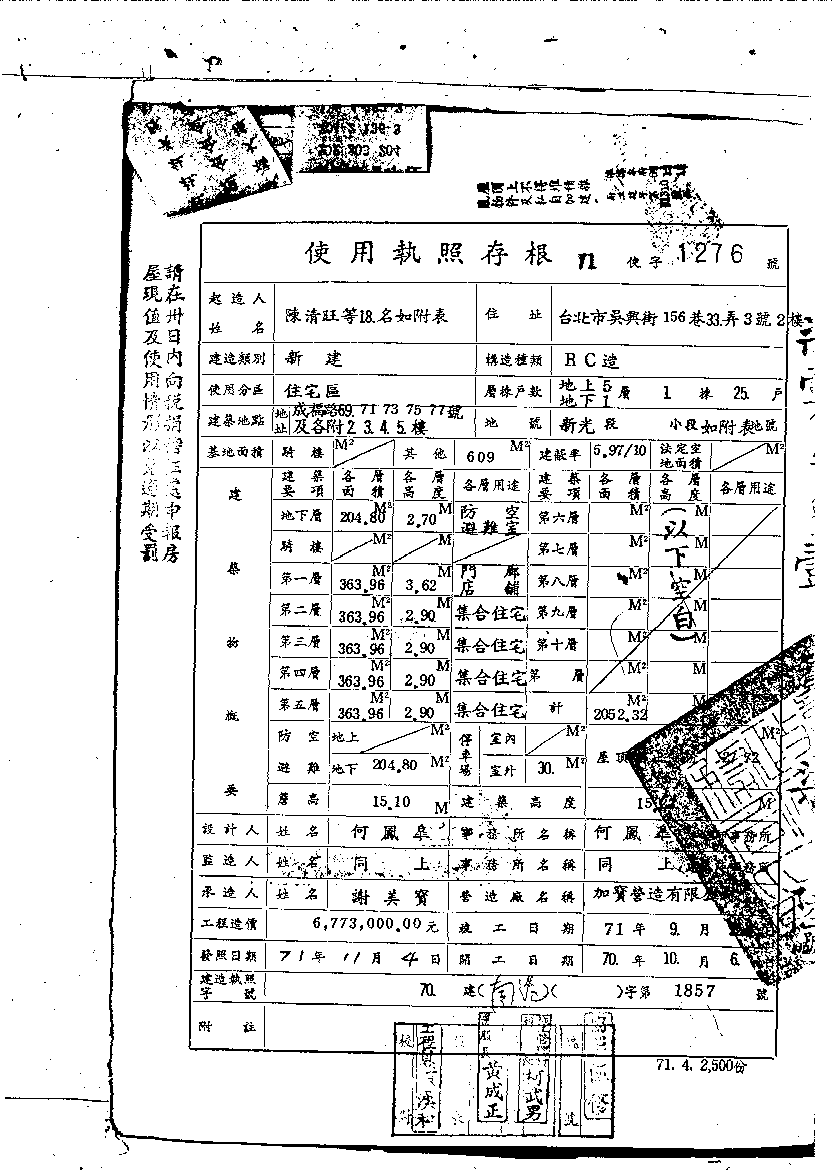 屋頂上不得堆積雜
亂物件及私自加建。
請在卅日內向稅捐稽征處申報房
屋現值及使用情形以免逾期受罰
使用執照存根 71 使字 1276 號
起造人姓名 陳清旺等18.名如附表 住址 台北市吳興街156巷33.弄3號2樓
建造類別 新建 構造種類 RC造
使用分區 住宅區 層棟戶數 地上5層 地下1 1.棟 25.戶
建築地點 地址 成福路69.71 73 75 77號及各附2 3.4.5.樓 地號 新光段 小段如附表地號
基地面積 騎樓 M² 其他 609 M² 建蔽率 5.97/10 法定空地面積 M²
建築物概要 建築要項 各層面積 各層高度 各層用途 建築要項 各層面積 各層高度 各層用途
地下層 204.80 M² 2.70 M 防空避難室 第六層 M² M
騎樓 M² M 第七層 M² M
第一層 363.96 M² 3.62 M 門廊店舖 第八層 M² M
第二層 363.96 M² 2.90 M 集合住宅 第九層 M² M
第三層 363.96 M² 2.90 M 集合住宅 第十層 M² M
第四層 363.96 M² 2.90 M 集合住宅 第 層 M² M
第五層 363.96 M² 2.90 M 集合住宅 計 2052.32 M²
(以下空白)
防空避難 地上 M² 停車場 室內 M²
地下 204.80 M² 室外 30. M² 屋
簷高 15.10 M 建築高度 M
設計人 姓名 何鳳皋 事務所名稱 何鳳皋 事務所
監造人 姓名 同上 事務所名稱 同上
承造人 姓名 謝美寶 營造廠名稱 加寶營造有限
工程造價 6,773,000.00元 竣工日期 71年 9.月
發照日期 71年 11月 4日 開工日期 70.年 10.月 6.
建造執照字號 70. 建( )( )字第 1857 號
附註
黃成正
柯武男
71.4.2,500份